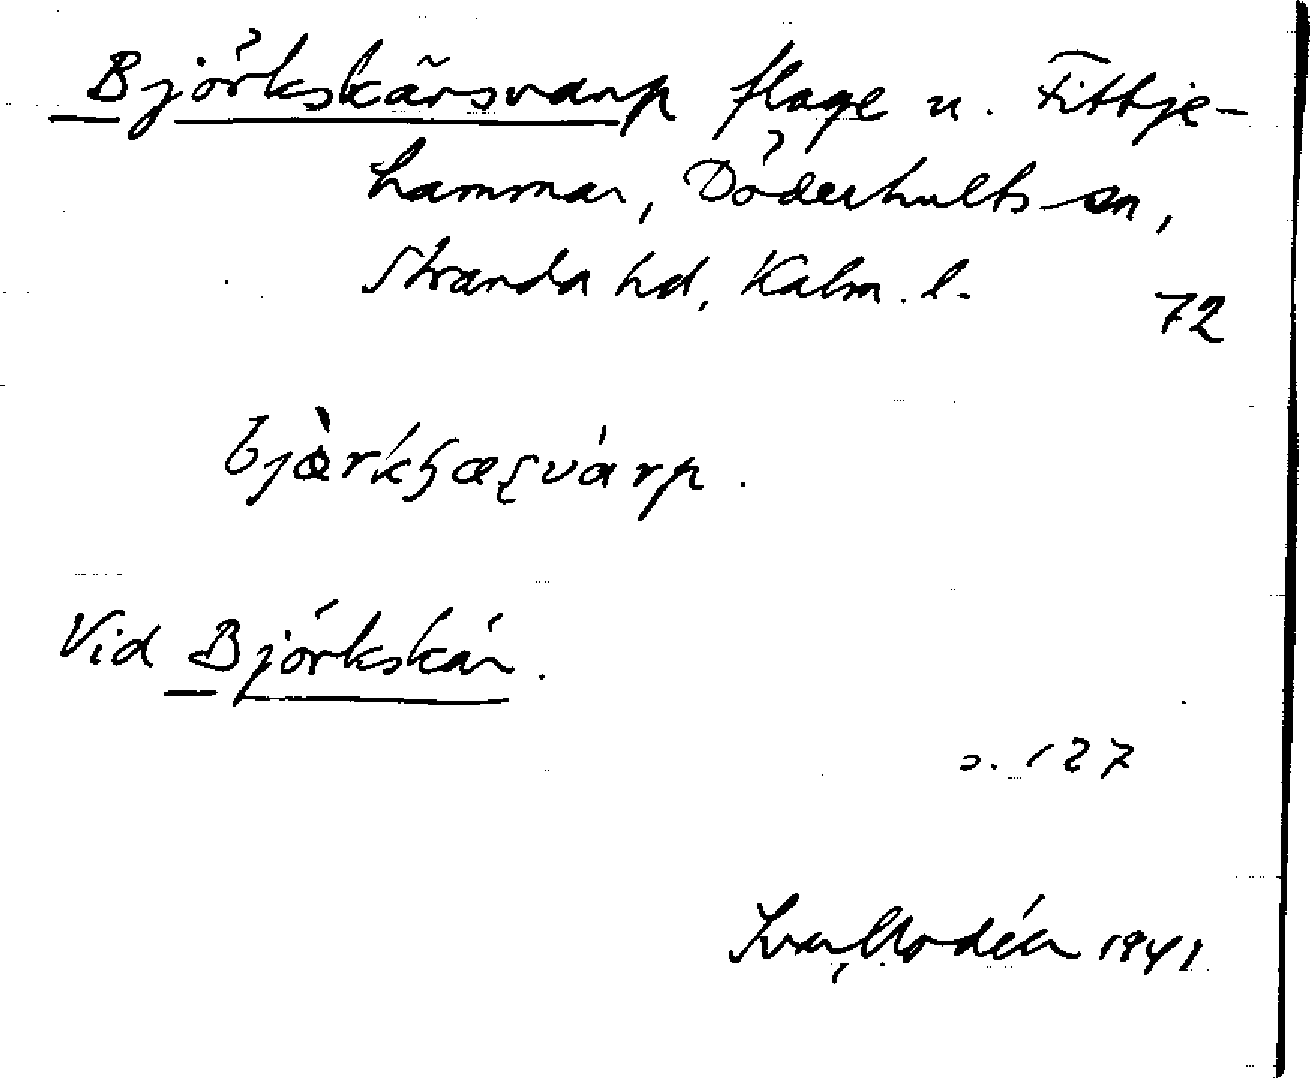 Björkskärsvarp flage u. Fittje-
hammar, Döderhults sn,
Stranda hd, Kalm. l.
72
bjærkʃæʂvárp.
Vid Björkskär.
s. 127
Ivar Modéer 1941